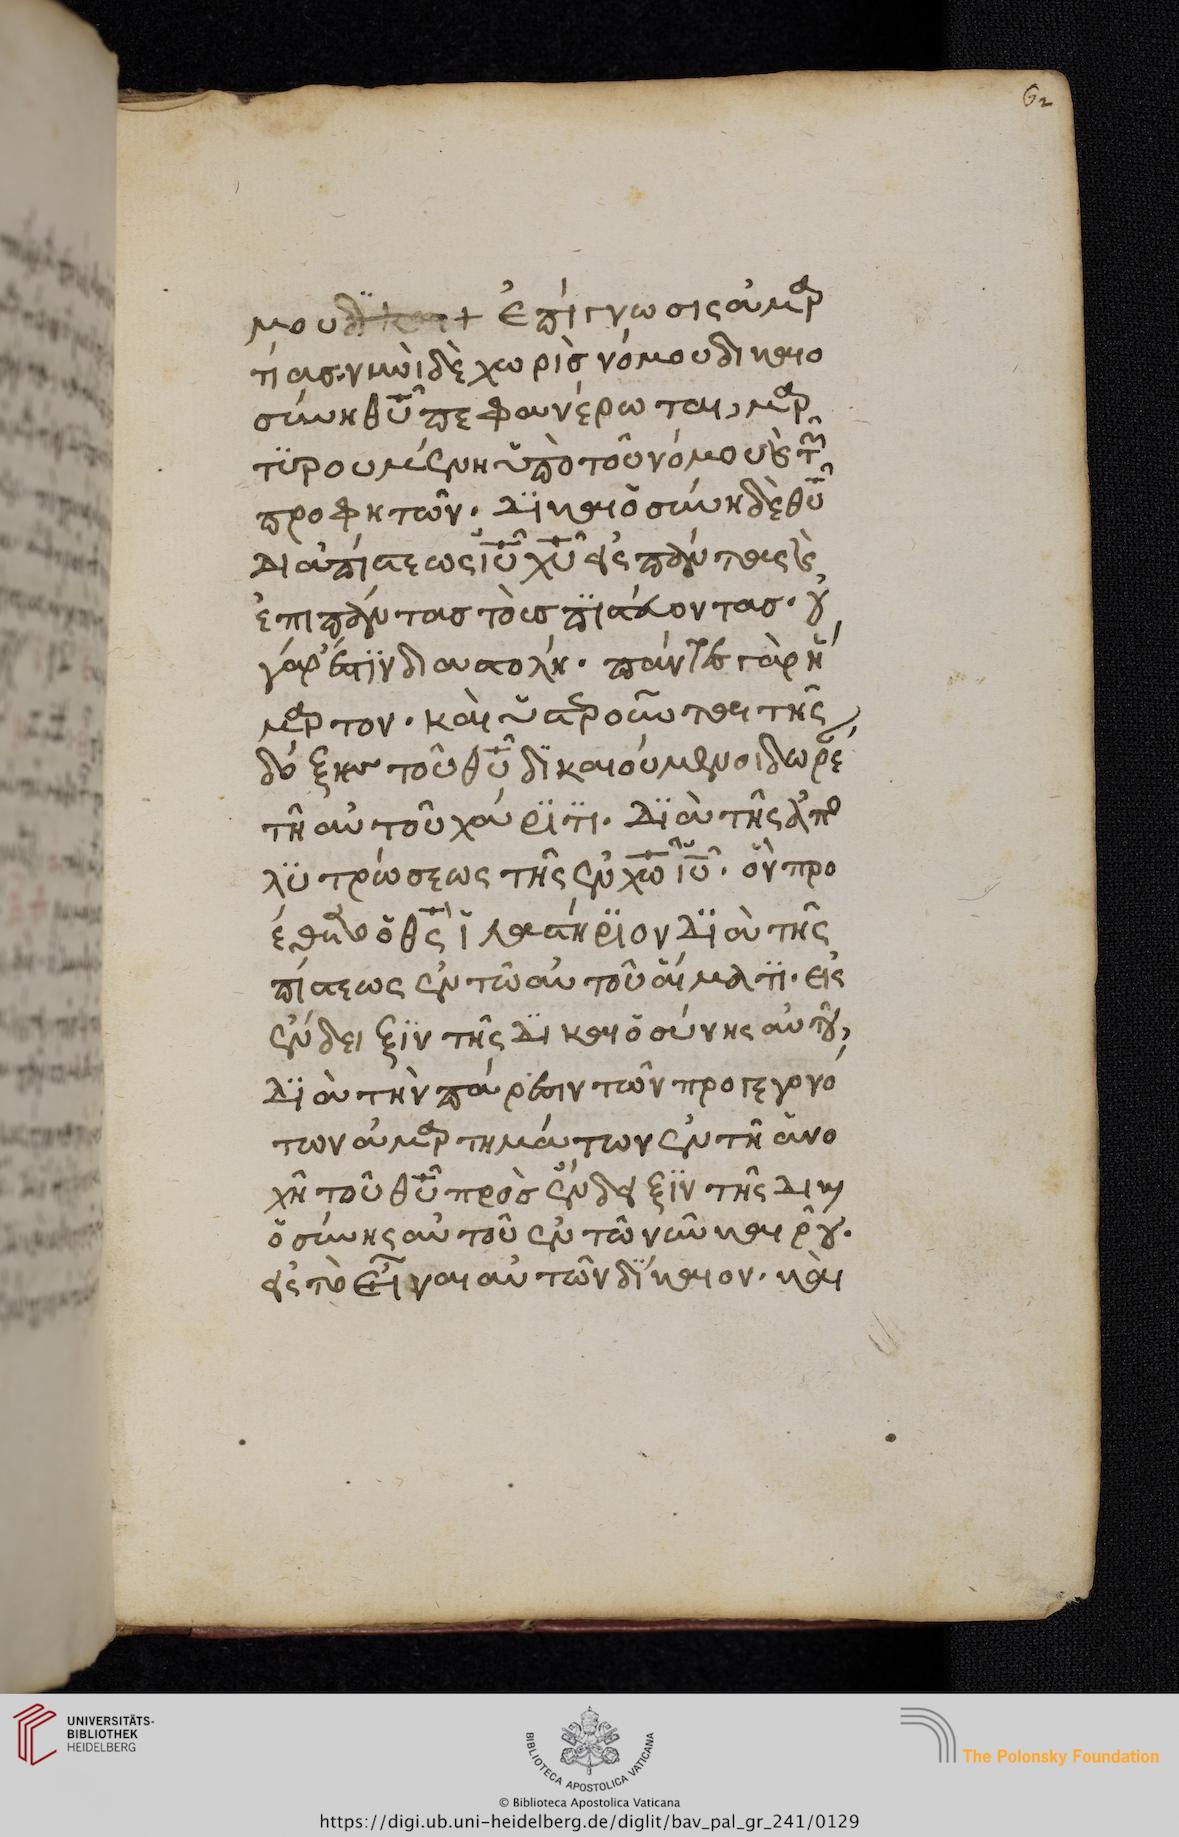 62
μου ἐπίγνωσις ἁμαρ
τίας. νυνὶ δὲ χωρὶσ νόμου δικαιο
σύνη θῦ πεφανέρωται, μαρ
τϋρουμένη ὑπὸ τοῦ νόμου καὶ τῶν
προφητῶν. Δϊκαιὸσύνη δὲ θῦ
Διὰ πίστεως ἰῦ χῦ εἰς πάντας καὶ
ἐπι πάντασ τοὺσ πϊστέυοντασ. οὐ
γάρ ἐστϊν διαστολὴ. πάντες γὰρ ἥ
μαρτον. καὶ ὑστεροῦνται τῆς
δόξησ τοῦ θῦ δϊκαιούμενοι δωρε
τῆ αὐτοῦ χάρϊτϊ. Δϊὰ τῆς ἀπο
λϋτρώσεως τῆς ἐν χῶ ἰῦ. ὃν προ
έθετο ὁ θς ἱλαστήρϊον Δϊὰ τῆς
πίστεως ἐν τῶ αὐτοῦ αἵματϊ. εἰς
ἔνδειξϊν τῆς Δϊκαιὸσύνης αὐτοῦ,
Δϊὰ τὴν πάρεσιν τῶν προγεγονό
των ἁμαρτημάτων ἐν τῆ ἀνο
χῆ τοῦ θῦ πρὸσ ἔνδειξϊν τῆς Δικαι
ὸσύνης αὐτοῦ ἐν τῶ νῦν καιρῶ.
εἰς τὸ εἶναι αὐτῶν δϊκαιον. καὶ
UNIVERSITÄTS-
BIBLIOTHEK
HEIDELBERG
BIBLIOTECA APOSTOLICA VATICANA
The Polonsky Foundation
© Biblioteca Apostolica Vaticana
https://digi.ub.uni-heidelberg.de/diglit/bav_pal_gr_241/0129